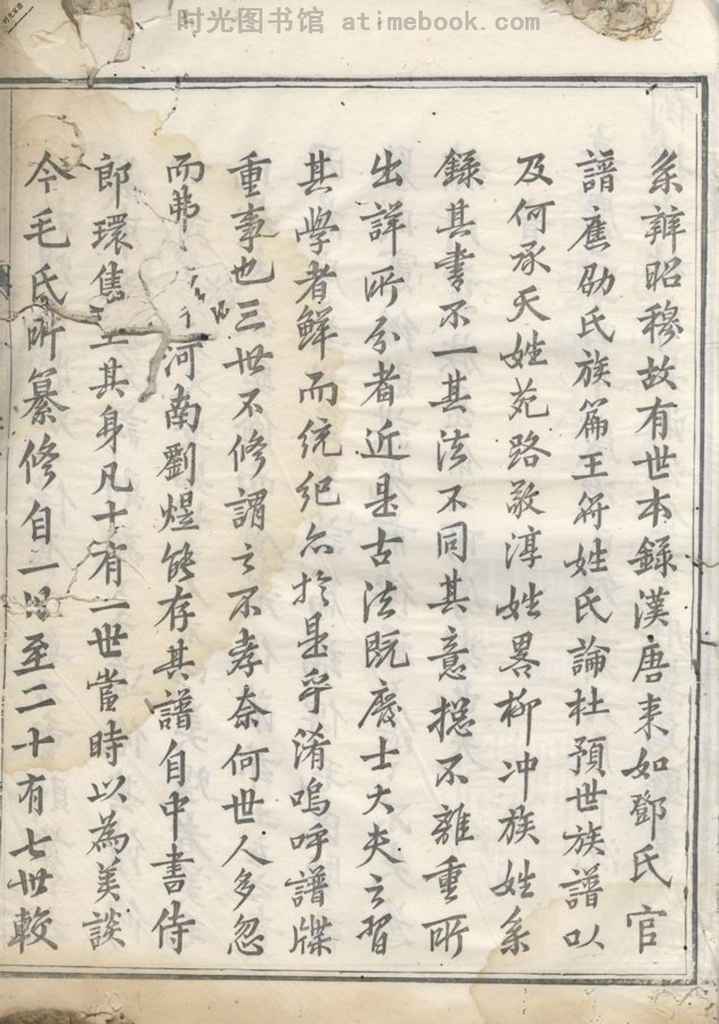 时光图书馆 atimebook.com
系辨昭穆故有世本錄漢唐来如鄧氏官
譜應劭氏族篇王符姓氏論杜預世族譜以
及何承天姓苑路敬淳姓畧柳冲族姓系
錄其書不一其法不同其意揔不離重所
出詳所分者近是古法既廢士大夫之習
其學者鮮而統紀亦於是乎淆嗚呼譜牒
重事也三世不修謂之不孝奈何世人多忽
而弗河南劉煜能存其譜自中書侍
郎環雋至其身凡十有一世當時以為美談
今毛氏所纂修自一世至二十有七世較